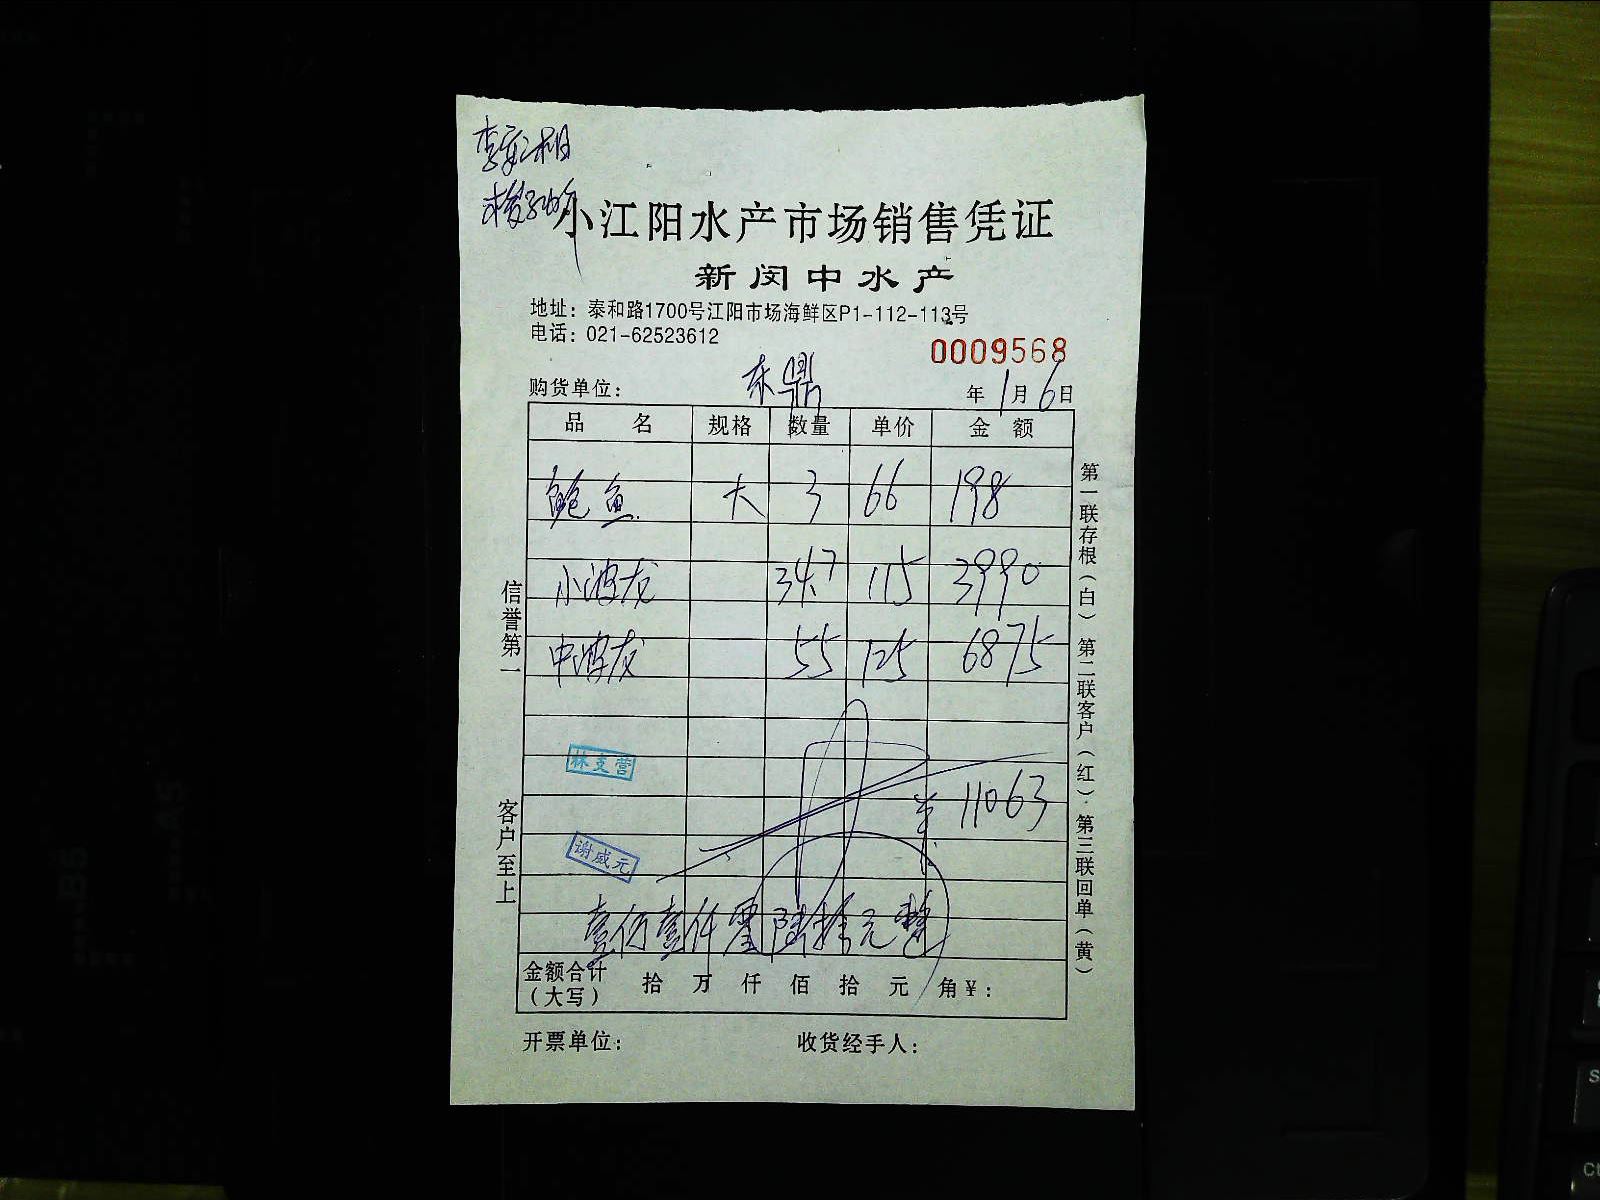 小江阳水产市场销售凭证
新闵中水产
地址：泰和路1700号江阳市场海鲜区P1-112-113号
电话：021-62523612
0009568
购货单位：东鼎 年1月6日
品名 规格 数量 单价 金额
鲍鱼 大 3 66 198
小波龙 34.7 115 3990
中波龙 55 125 6875
林支营
11063
谢威元
壹仟零陆拾元整
金额合计（大写） 拾 万 仟 佰 拾 元 角 ¥：
开票单位： 收货经手人：
信誉第一
客户至上
第一联存根（白）第二联客户（红）第三联回单（黄）